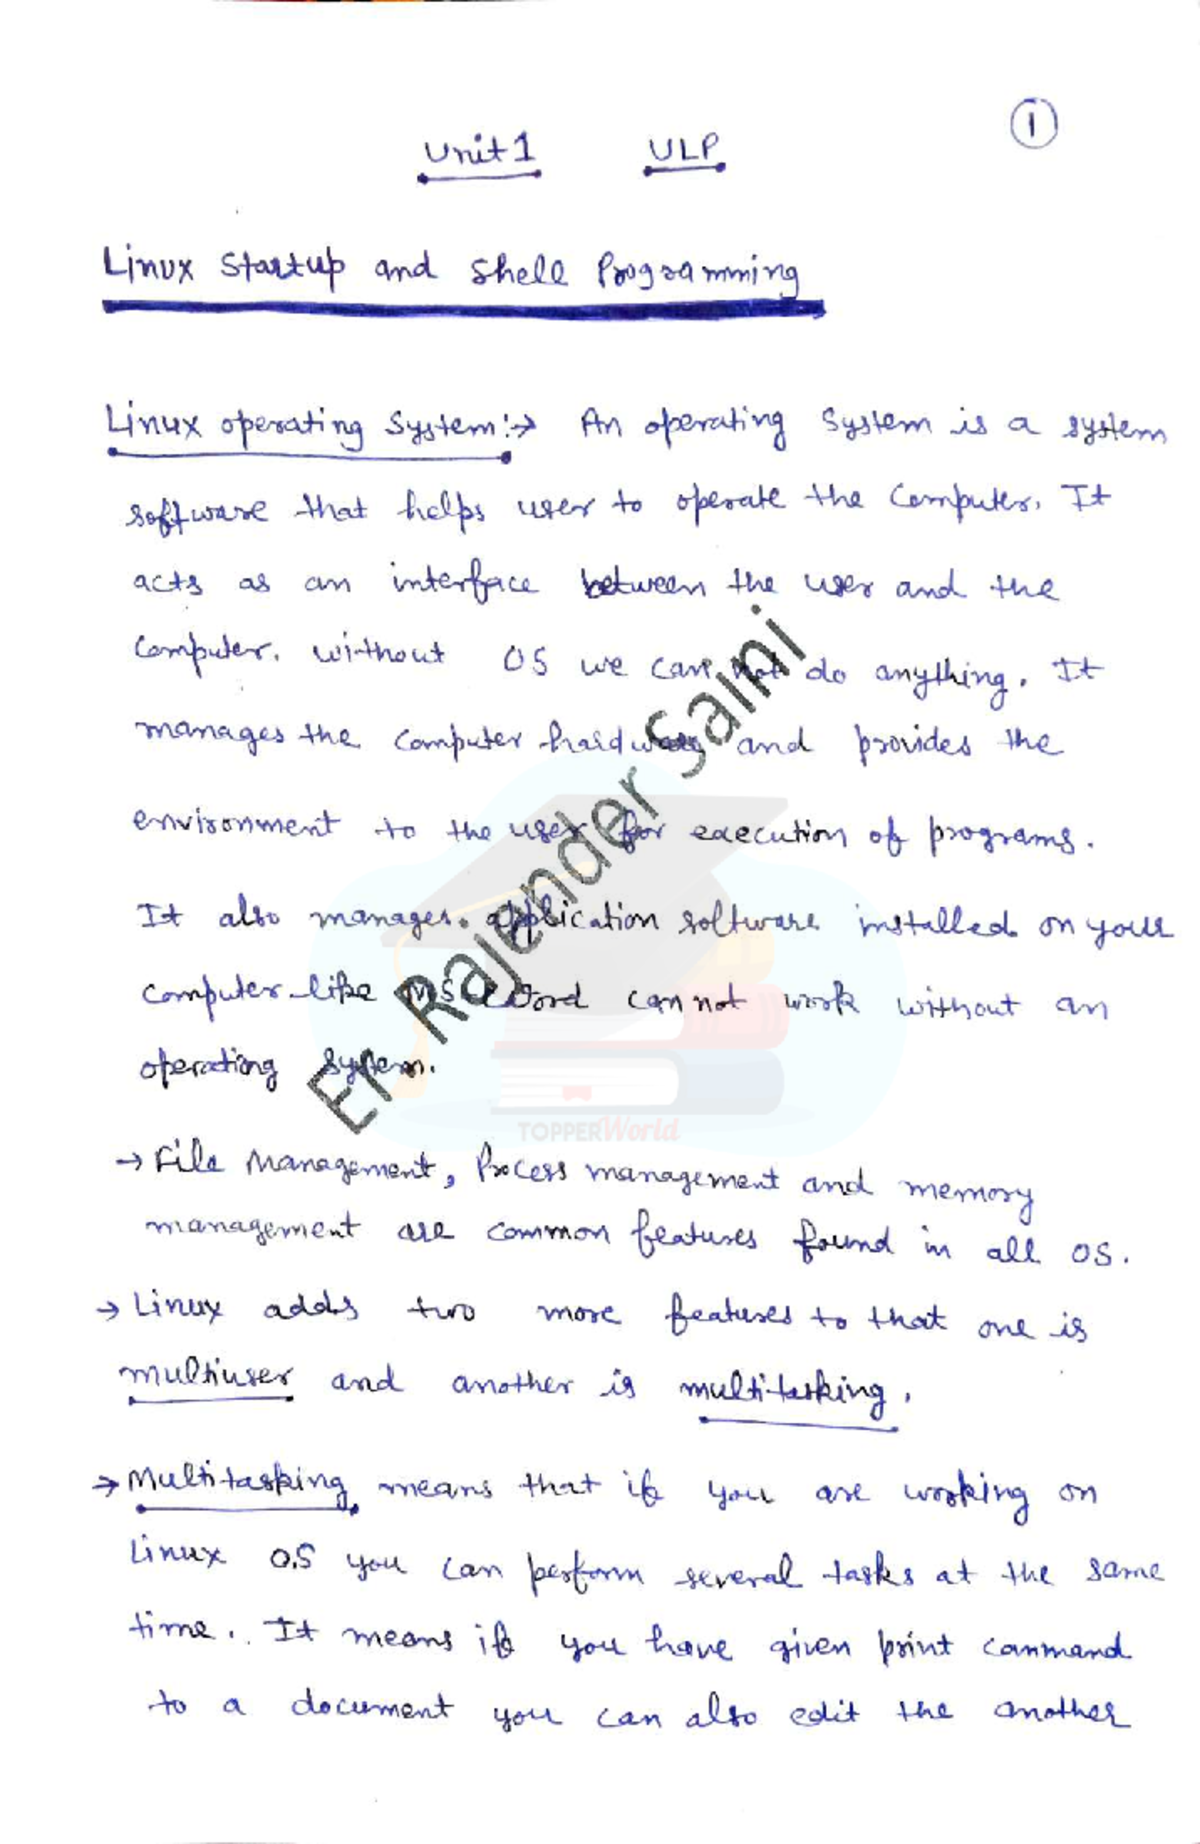 1
Unit 1 ULP
Linux Startup and Shell Programming
Linux operating System:→ An operating System is a system
software that helps user to operate the Computer. It
acts as an interface between the user and the
Computer. without OS we can not do anything. It
manages the computer hardware and provides the
environment to the user for execution of programs.
It also manages. application software installed on your
Computer like MS Word can not work without an
operating System.
Er. Rajender Saini
TOPPERWorld
→ File Management, Process management and memory
management are common features found in all OS.
→ Linux adds two more features to that one is
multiuser and another is multitasking.
→ Multitasking means that if you are working on
Linux O.S you can perform several tasks at the same
time. It means if you have given print command
to a document you can also edit the another